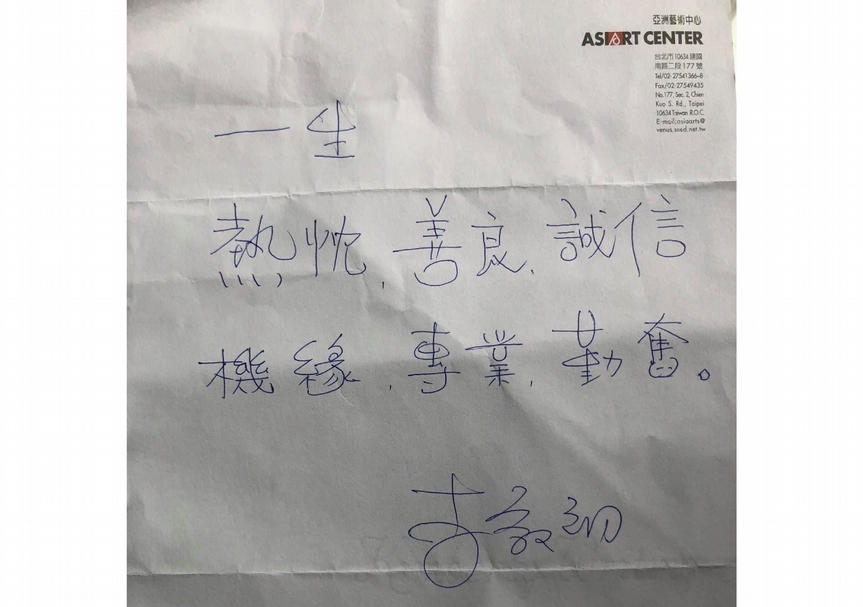 亞洲藝術中心
ASIART CENTER
台北市10634建國
南路二段177號
Tel/02-27541366-8
Fax/02-27549435
No.177, Sec. 2, Chien
Kuo S. Rd., Taipei
10634 Taiwan R.O.C.
E-mail:asiaarts@
venus.seed.net.tw
一生
熱忱,善良,誠信
機緣,專業,勤奮。
李敦朗